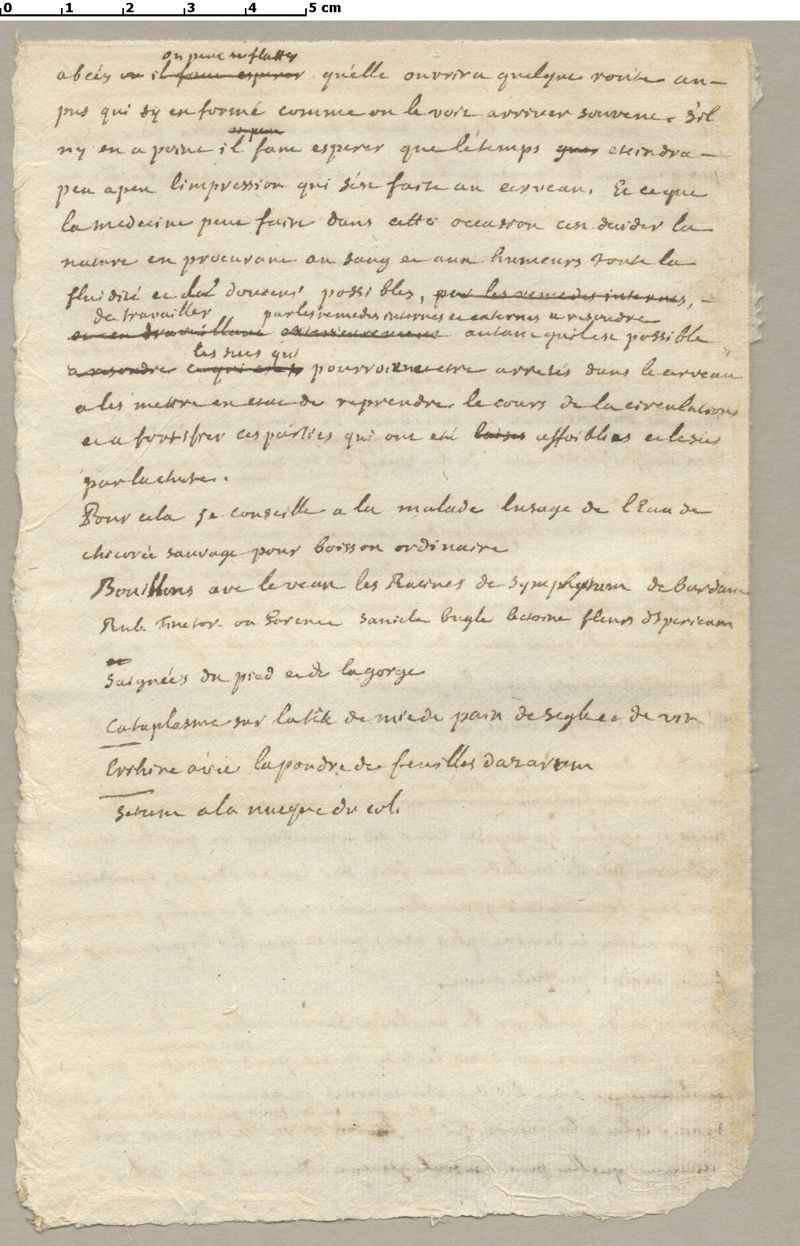 0 1 2 3 4 5 cm
on peut se flatter
abcés ou il faut esperer qu'elle ouvrira quelque route au
pus qui s'y en formé comme on le voit arriver souvent. S'il
on peut
n'y en a point il faut esperer que le temps eteindra
peu a peu l'impression qui s'est faite au cerveau. Et ce que
la medecine peut faire dans cette occasion cest daider la
nature en procurant au sang et aux humeurs toute la
fluidité et la douceur possibles, par les remedes internes,
de travailler par les remedes internes et externes a resoudre
et en travaillant exterieurement autant quil est possible
les sucs qui
a resoudre ce qui est pourroient etre arretés dans le cerveau
a les mettre en etat de reprendre le cours de la circulation
et a fortifier ces parties qui ont eté affoiblies et lesées
par la chute.
Pour cela je conseille a la malade lusage de l'Eau de
chicorée sauvage pour boisson ordinaire
Bouillons avec le veau les Racines de Symphytum de Bardane
Rub. Tinctor. ou Garence sanicle bugle betoine fleurs d'hypericum
et
Saignées du pied et de la gorge
Cataplasme sur la tête de mie de pain de seigle et de vin
Errhine avec la poudre de feuilles dazarum
Setum a la nucque du col.